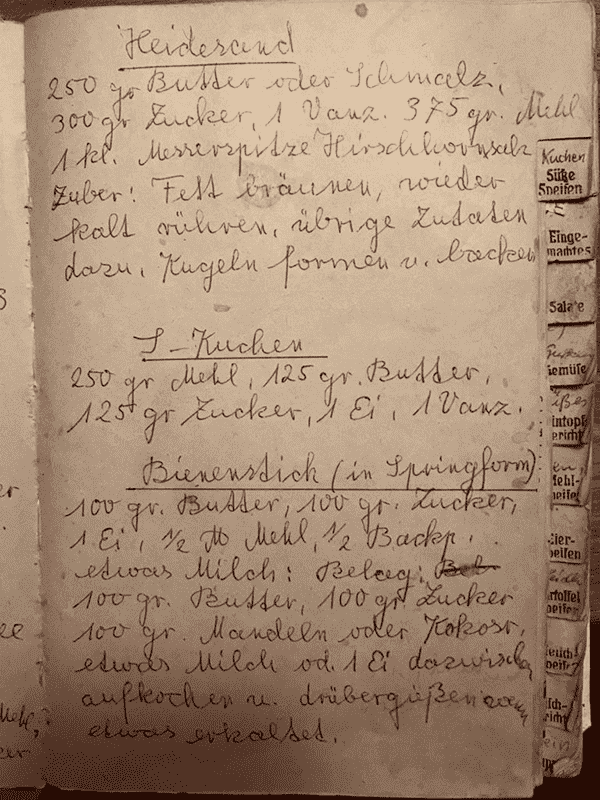 Heidesand
250 gr Butter oder Schmalz,
300 gr Zucker, 1 Vanz. 375 gr. Mehl
1 kl. Messerspitze Hirschhornsalz
Zuber: Fett bräunen, wieder
kalt rühren, übrige Zutaten
dazu, Kugeln formen u. backen
S-Kuchen
250 gr Mehl, 125 gr. Butter,
125 gr Zucker, 1 Ei, 1 Vanz.
Bienenstick (in Springform)
100 gr. Butter, 100 gr. Zucker,
1 Ei, 1/2 ℔ Mehl, 1/2 Backp.
etwas Milch: Belag: Bel
100 gr. Butter, 100 gr Zucker
100 gr. Mandeln oder Kokosr,
etwas Milch od. 1 Ei dazwischen
aufkochen u. drübergießen wenn
etwas erkaltet.
Kuchen
Süße
Speisen
Einge-
machtes
Salate
emüse
intopf
ericht
Mehl-
peisen
Eier-
peisen
rtoffel